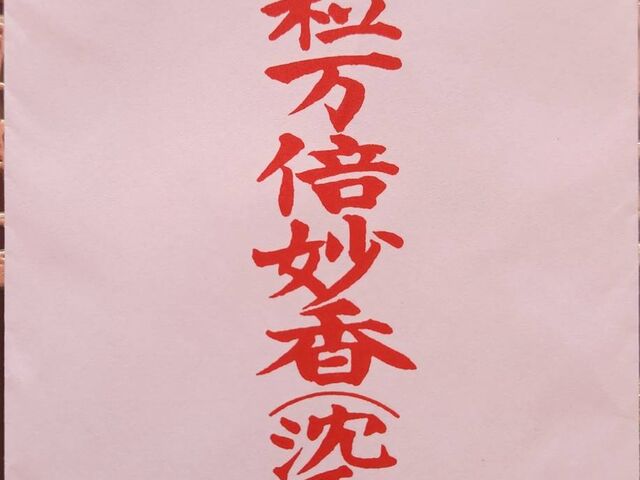 粒万倍妙香(沈